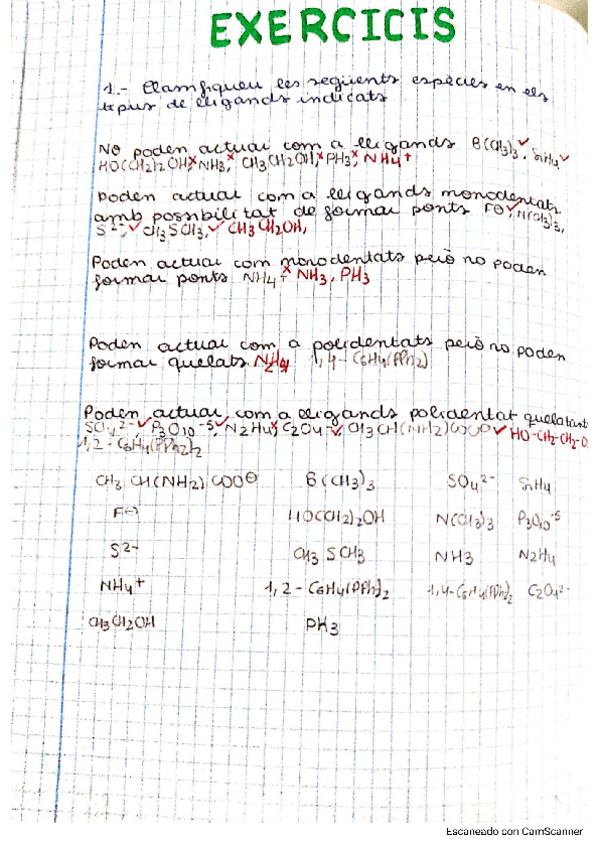 EXERCICIS
1.- Classifiqueu les següents espècies en els
tipus de lligands indicats
No poden actuar com a lligands B(CH3)3, SnH4
HO(CH2)2OH, NH3, CH3CH2OH, PH3, NH4+
Poden actuar com a lligands monodentats
amb possibilitat de formar ponts F⊖, N(CH3)3,
S2-, CH3SCH3, CH3CH2OH,
Poden actuar com monodentats però no poden
formar ponts NH4+ NH3, PH3
Poden actuar com a polidentats però no poden
formar quelats N2H4 1,4-C6H4(PPh2)
Poden actuar com a lligands polidentat quelatant
SO4 2-, P3O10 -5, N2H4, C2O4 2-, CH3CH(NH2)COO⊖ HO-CH2-CH2-O
1,2-C6H4(PPh2)2
CH3CH(NH2)COO⊖ B(CH3)3 SO4 2- SnH4
F(-) HO(CH2)2OH N(CH3)3 P3O10 -5
S2- CH3SCH3 NH3 N2H4
NH4+ 1,2-C6H4(PPh2)2 1,4-C6H4(PPh)2 C2O4 2-
CH3CH2OH PH3
Escaneado con CamScanner